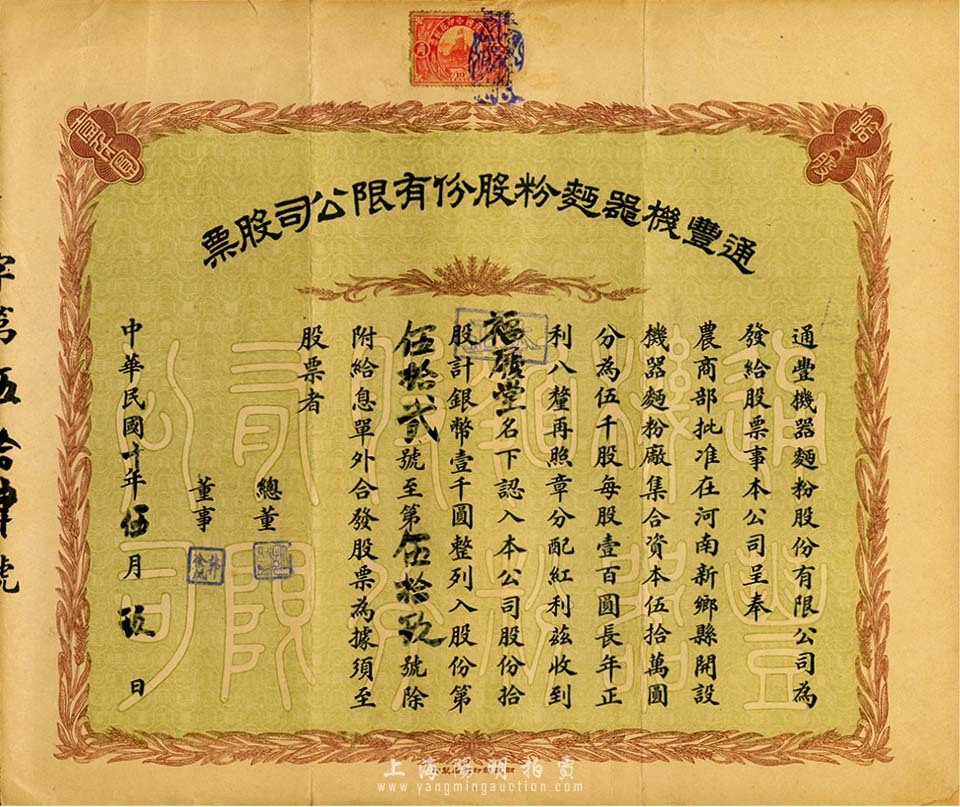 拾股
壹千圓
通豐機器麵粉股份有限公司股票
通豐機器麵粉股份有限公司為
發給股票事本公司呈奉
農商部批准在河南新鄉縣開設
機器麵粉廠集合資本伍拾萬圓
分為伍千股每股壹百圓長年正
利八釐再照章分配紅利茲收到
福履堂名下認入本公司股份拾
股計銀幣壹千圓整列入股份第
伍拾貳號至第伍拾玖號除
附給息單外合發股票為據須至
股票者
總董
董事
中華民國十年伍月玖日
字第伍拾肆號
上海陽明拍賣
www.yangmingauction.com